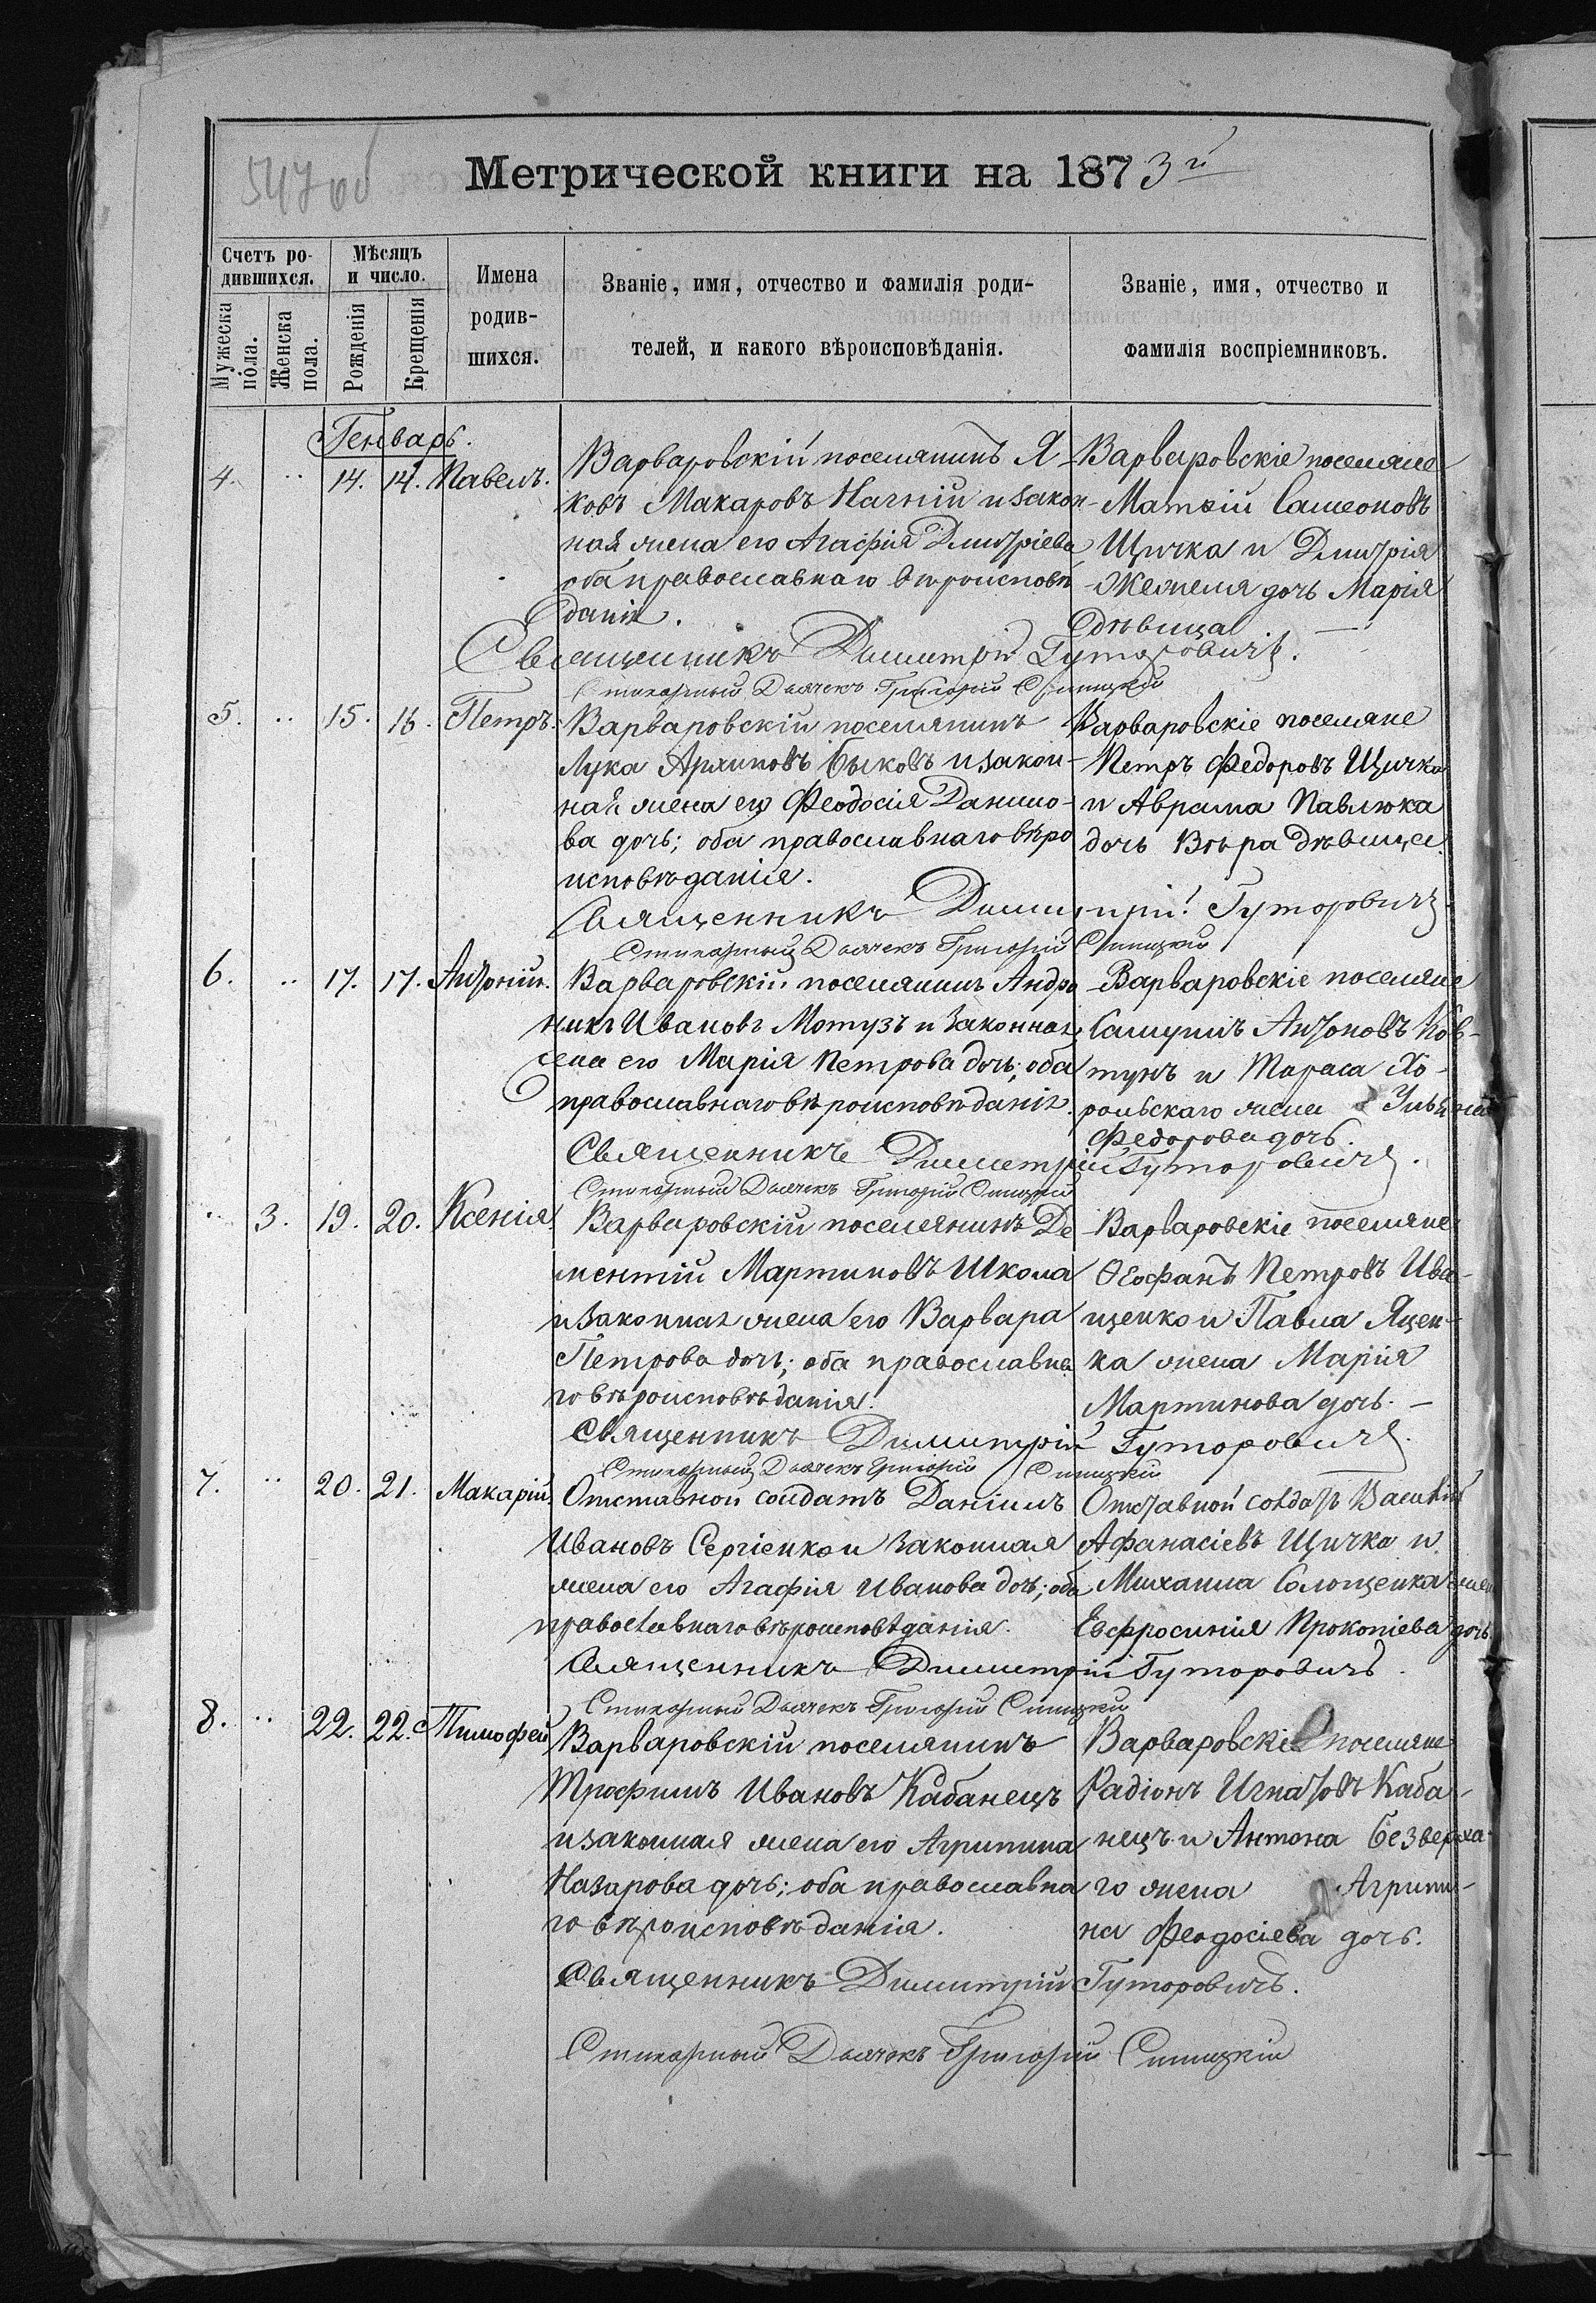 547 об
Метрической книги на 1873й
Счетъ ро-
дившихся.
Мѣсяцъ
и число.
Имена
родив-
шихся.
Званіе, имя, отчество и фамилія роди-
телей, и какого вѣроисповѣданія.
Званіе, имя, отчество и
фамилія воспріемниковъ.
Мужеска
пола.
Женска
пола.
Рожденія
Крещенія
Генварь.
4. .. 14. 14. Павелъ. Варваровскій поселянинъ Я- Варваровскіе поселяне
ковъ Макаровъ и закон- Матвій Самсоновъ
ная жена его Агафія Дмитріева Щичка и Дмитрія
оба православнаго вѣроисповѣ- дочь Марія
данія. дѣвица
Священникъ Димитрій Гуторовичъ.
Стихарный Дьячекъ Григорій Синицкій
5. .. 15. 16. Петръ. Варваровскій поселянинъ Варваровскіе поселяне
Лука Архиповъ Быковъ и закон- Петръ Федоровъ Щичка
ная жена его Феодосія Данило- и Аврама Павлюка
ва дочь; оба православнаго вѣро дочь Вѣра дѣвица.
исповѣданія.
Священникъ Димитрій Гуторовичъ.
Стихарный Дьячекъ Григорій Синицкій
6. .. 17. 17. Антоній. Варваровскій поселянинъ Андро Варваровскіе поселяне
никъ Ивановъ Мотузъ и законная Самуилъ Антоновъ Ков-
жена его Марія Петрова дочь; оба тунъ и Тараса Хо-
православнаго вѣроисповѣданія. рольскаго жена Ульяна
Федорова дочь.
Священникъ Димитрій Гуторовичъ.
Стихарный Дьячекъ Григорій Синицкій
.. 3. 19. 20. Ксенія. Варваровскій поселянинъ Де Варваровскіе поселяне
ментій Мартиновъ Школа Ѳеофанъ Петровъ Ива-
и законная жена его Варвара щенко и Павла Яцен-
Петрова дочь; оба православна ка жена Марія
го вѣроисповѣданія. Мартинова дочь. —
Священникъ Димитрій Гуторовичъ.
Стихарный Дьячекъ Григорій Синицкій
7. .. 20. 21. Макарій. Отставной солдатъ Даніилъ Отставной солдатъ Василій
Ивановъ Сергіенко и законная Афанасіевъ Щичка и
жена его Агафія Иванова дочь; оба Михаила Солощенка жена
православнаго вѣроисповѣданія. Евфросинія Прокопіева дочь.
Священникъ Димитрій Гуторовичъ.
Стихарный Дьячекъ Григорій Синицкій
8. .. 22. 22. Тимофей Варваровскій поселянинъ Варваровскіе поселяне
Трофимъ Ивановъ Кабанецъ Радіонъ Игнатовъ Каба-
и законная жена его Агрипина нецъ и Антона Безверха-
Назарова дочь; оба православна го жена Агрипи-
го вѣроисповѣданія. на Феодосіева дочь.
Священникъ Димитрій Гуторовичъ.
Стихарный Дьячекъ Григорій Синицкій